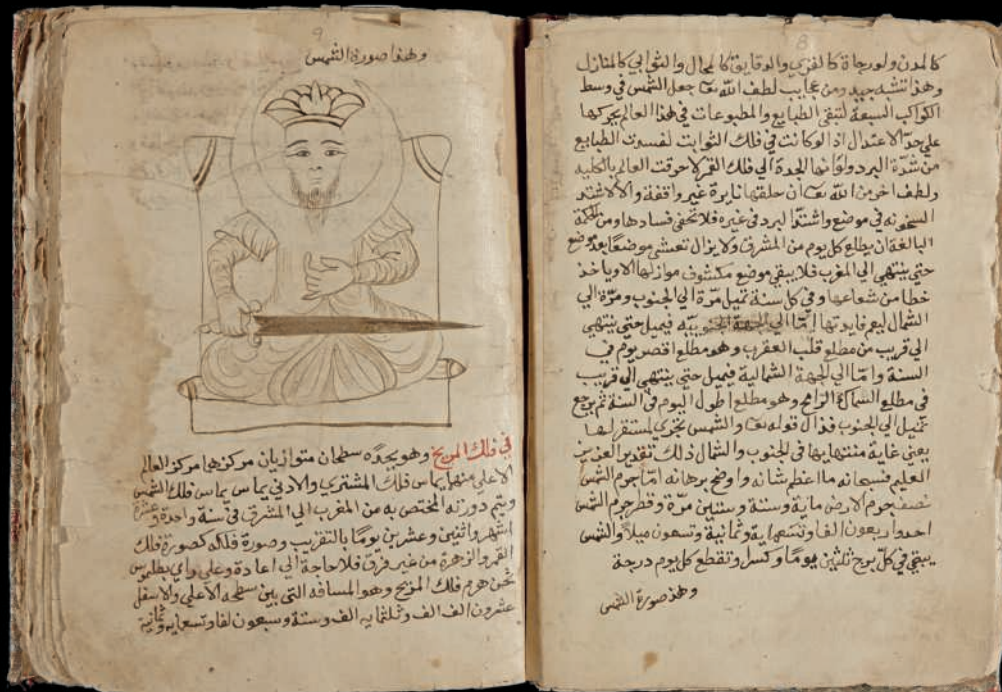 8
كالمدن ولورجاة كالقري والدقايق كالمحال والثوابي كالمنازل
وهذا تشبه جيد ومن عجايب لطف الله تعا جعل الشمس في وسط
الكواكب السبعة لتبقى الطبايع والمطبوعات في هذا العالم بحركتها
علي حدّ الاعتدال اذ لو كانت في فلك الثوابت لفسدت الطبايع
من شدّة البرد ولو انها انحدرة الي فلك القمر لاحرقت العالم بالكليه
ولطف اخر من الله تعا ان خلقها نايرة غير واقفة والا لاشتد
السخونه في موضع واشتد البرد في غيره فلا تخفي فسادها ومن الحكمة
البالغة ان يطلع كل يوم من المشرق ولا يزال تغشى موضعا بعد موضع
حتي ينتهي الي المغرب فلا يبقي موضع مكشوف موازلها الا وياخذ
خطا من شعاعها وفي كل سنة تميل مرّة الي الجنوب ومرّة الي
الشمال ليعم فايدتها امّا الي الجهة الجنوبيّه فيميل حتي ينتهي
الي قريب من مطلع قلب العقرب وهو مطلع اقصر يوم في
السنة وامّا الي الجهة الشمالية فيميل حتي ينتهي الي قريب
في مطلع السماك الرامح وهو مطلع اطول اليوم في السنة ثم يرجع
تميل الي الجنوب فذال قوله تعا والشمس تجري لمستقر لها
يعني غاية منتهايها في الجنوب والشمال ذلك تقدير العزيز
العليم فسبحانه ما اعظم شانه واوضح برهانه امّا جرم الشمس
نصف جرم الارض ماية وستة وستين مرّة وقطر جرم الشمس
احد واربعون الفا وتسعماية وثمانية وتسعون ميلا والشمس
يبقي في كلّ برج ثلثين يومًا وكسر وتقطع كل يوم درجة
وهذ صورة الشمس
9
وهذا صورة الشمس
في فلك المريخ وهو يحدّه سطحان متوازيان مركزهما مركز العالم
الاعلي منهما يماس فلك المشتري والادني يماس بماس فلك الشمس
ويتم دورته المختص به من المغرب الي المشرق في سنة واحدة وعشرة
اشهر واثنين وعشرين يومًا بالتقريب وصورة فلكه كصورة فلك
القمر والزهرة من غير فرق فلا حاجة الي اعادة وعلي راي بطلميوس
ثخن جرم فلك المريخ وهو المسافه التي بين سطحه الاعلي والاسفل
عشرون الف الف وثلثمايه الف وستة وسبعون لفا وتسعمايه وثمانية